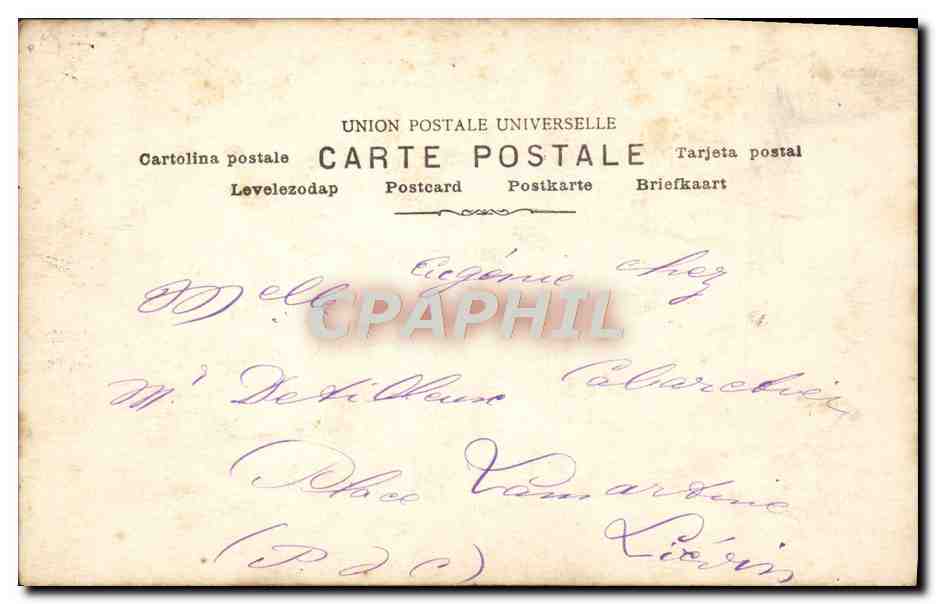 UNION POSTALE UNIVERSELLE
Cartolina postale CARTE POSTALE Tarjeta postal
Levelezodap Postcard Postkarte Briefkaart
Melle Eugénie chez
CPAPHIL
Mr Detilleux Cabaretier
Place Lamartine
Liévin
(P. d C)